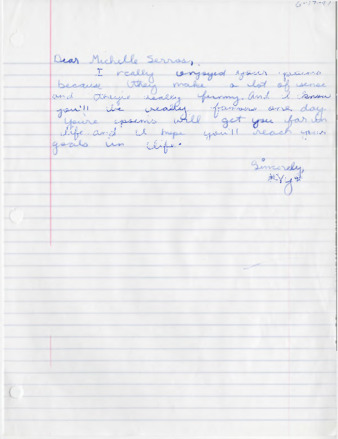 Dear Michelle Serros,
I really enjoyed your poems
because they make a lot of sense
and they're really funny. And I know
you'll be really famous one day.
You're poems will get you far in
life and I hope you'll reach your
goals in life.
Sincerely,